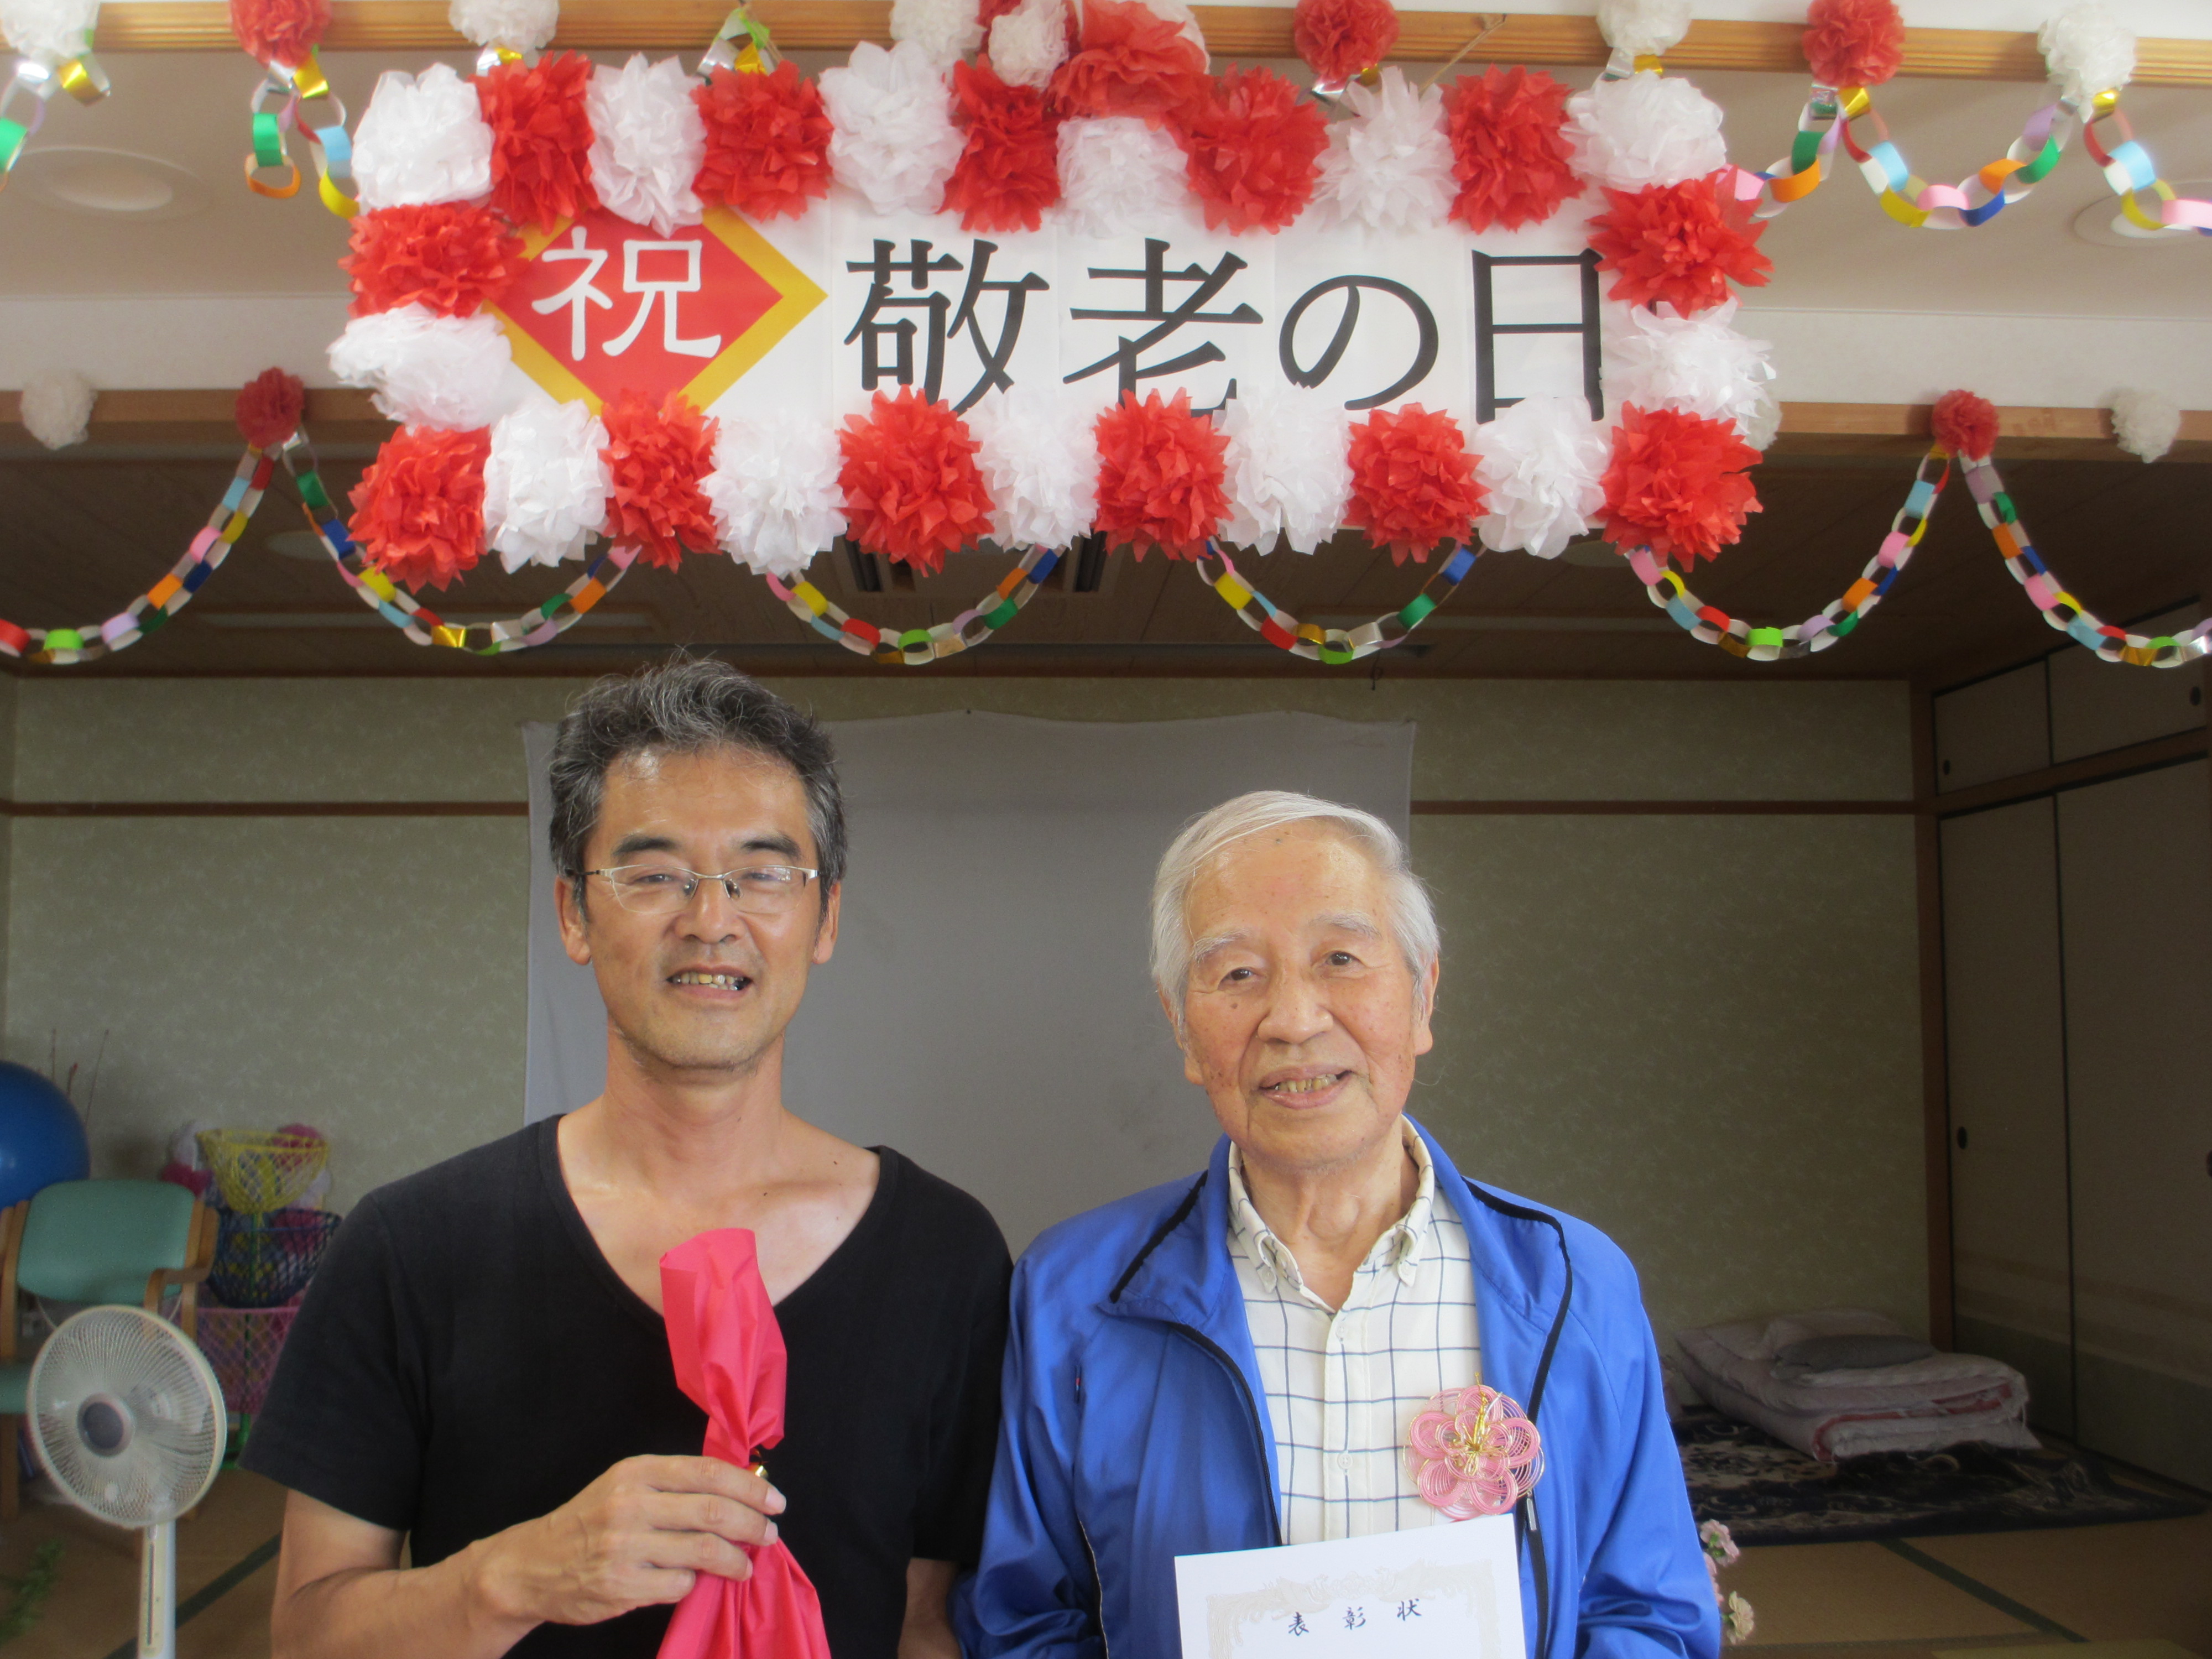 祝 敬老の日
表彰状